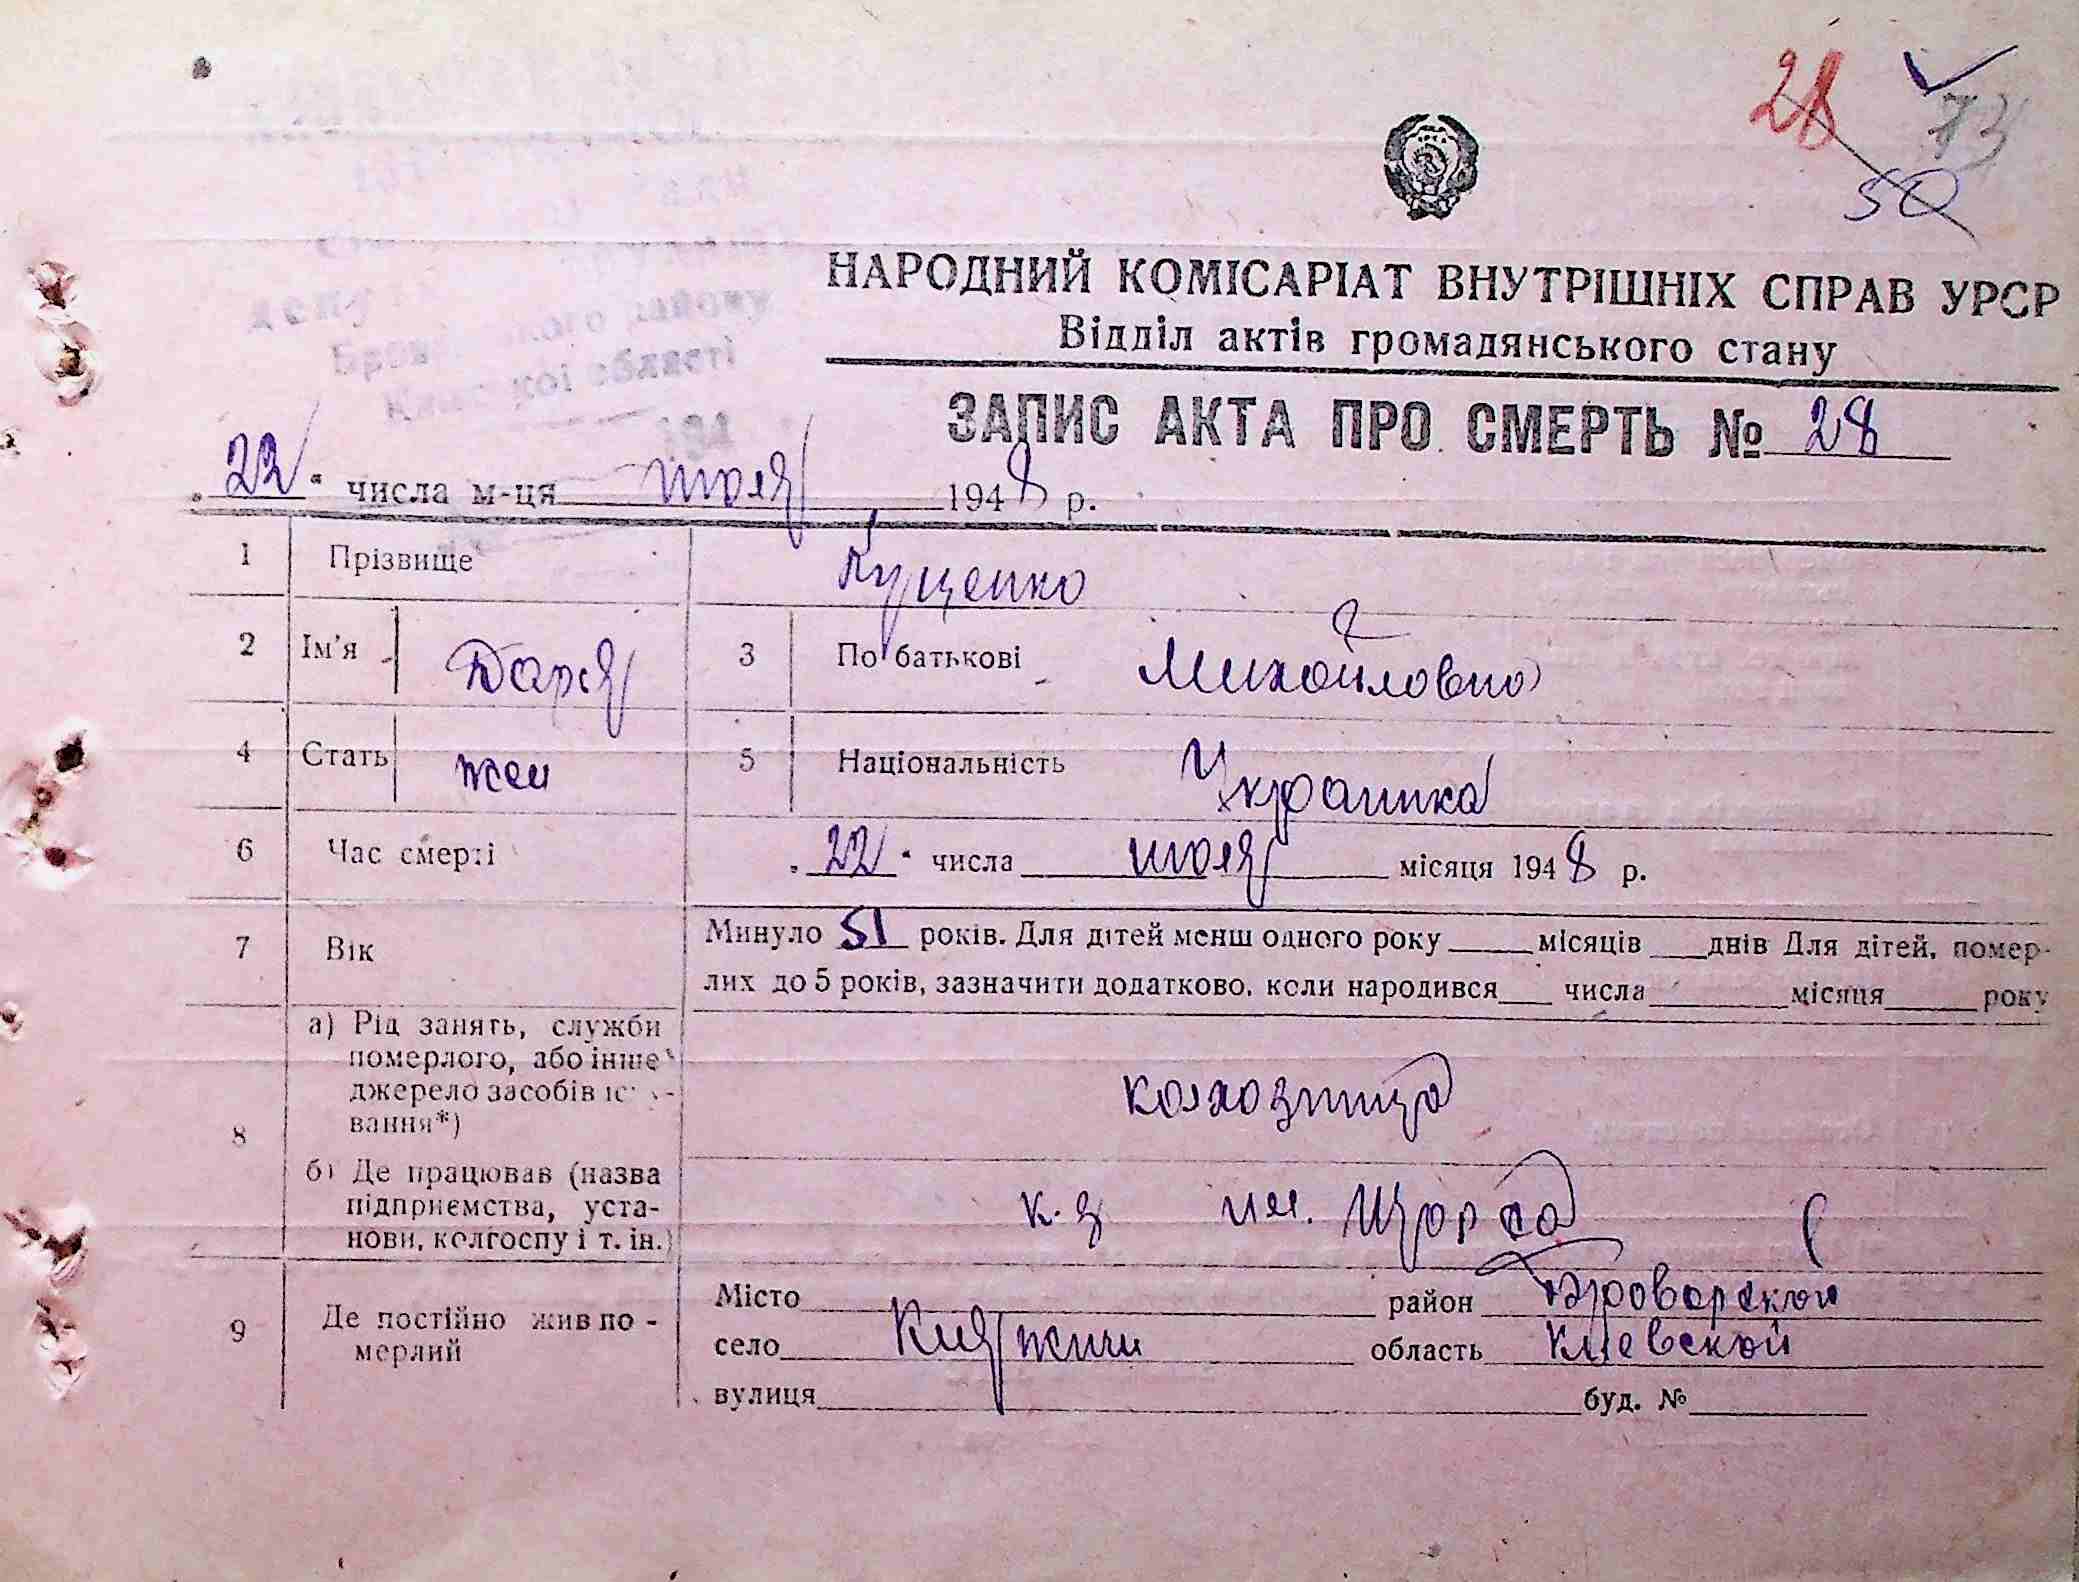 28 73
50
НАРОДНИЙ КОМІСАРІАТ ВНУТРІШНІХ СПРАВ УРСР
Відділ актів громадянського стану
Броварського району
Київської області
194
ЗАПИС АКТА ПРО СМЕРТЬ № 28
„22“ числа м-ця июля 1948 р.
1 Прізвище Куценко
2 Ім'я Дарья 3 По батькові Михайловна
4 Стать жен 5 Національність Украинка
6 Час смерті „22“ числа июля місяця 1948 р.
7 Вік Минуло 51 років. Для дітей менш одного року місяців днів Для дітей, помер-
лих до 5 років, зазначити додатково, коли народився числа місяця року
8 а) Рід занять, служби
померлого, або інше
джерело засобів існу-
вання*) колхозница
б) Де працював (назва
підприємства, уста-
нови, колгоспу і т. ін.) к-з им. Щорса
9 Де постійно жив по-
мерлий
Місто район Броварской
село Княжичи область Киевской
вулиця буд. №